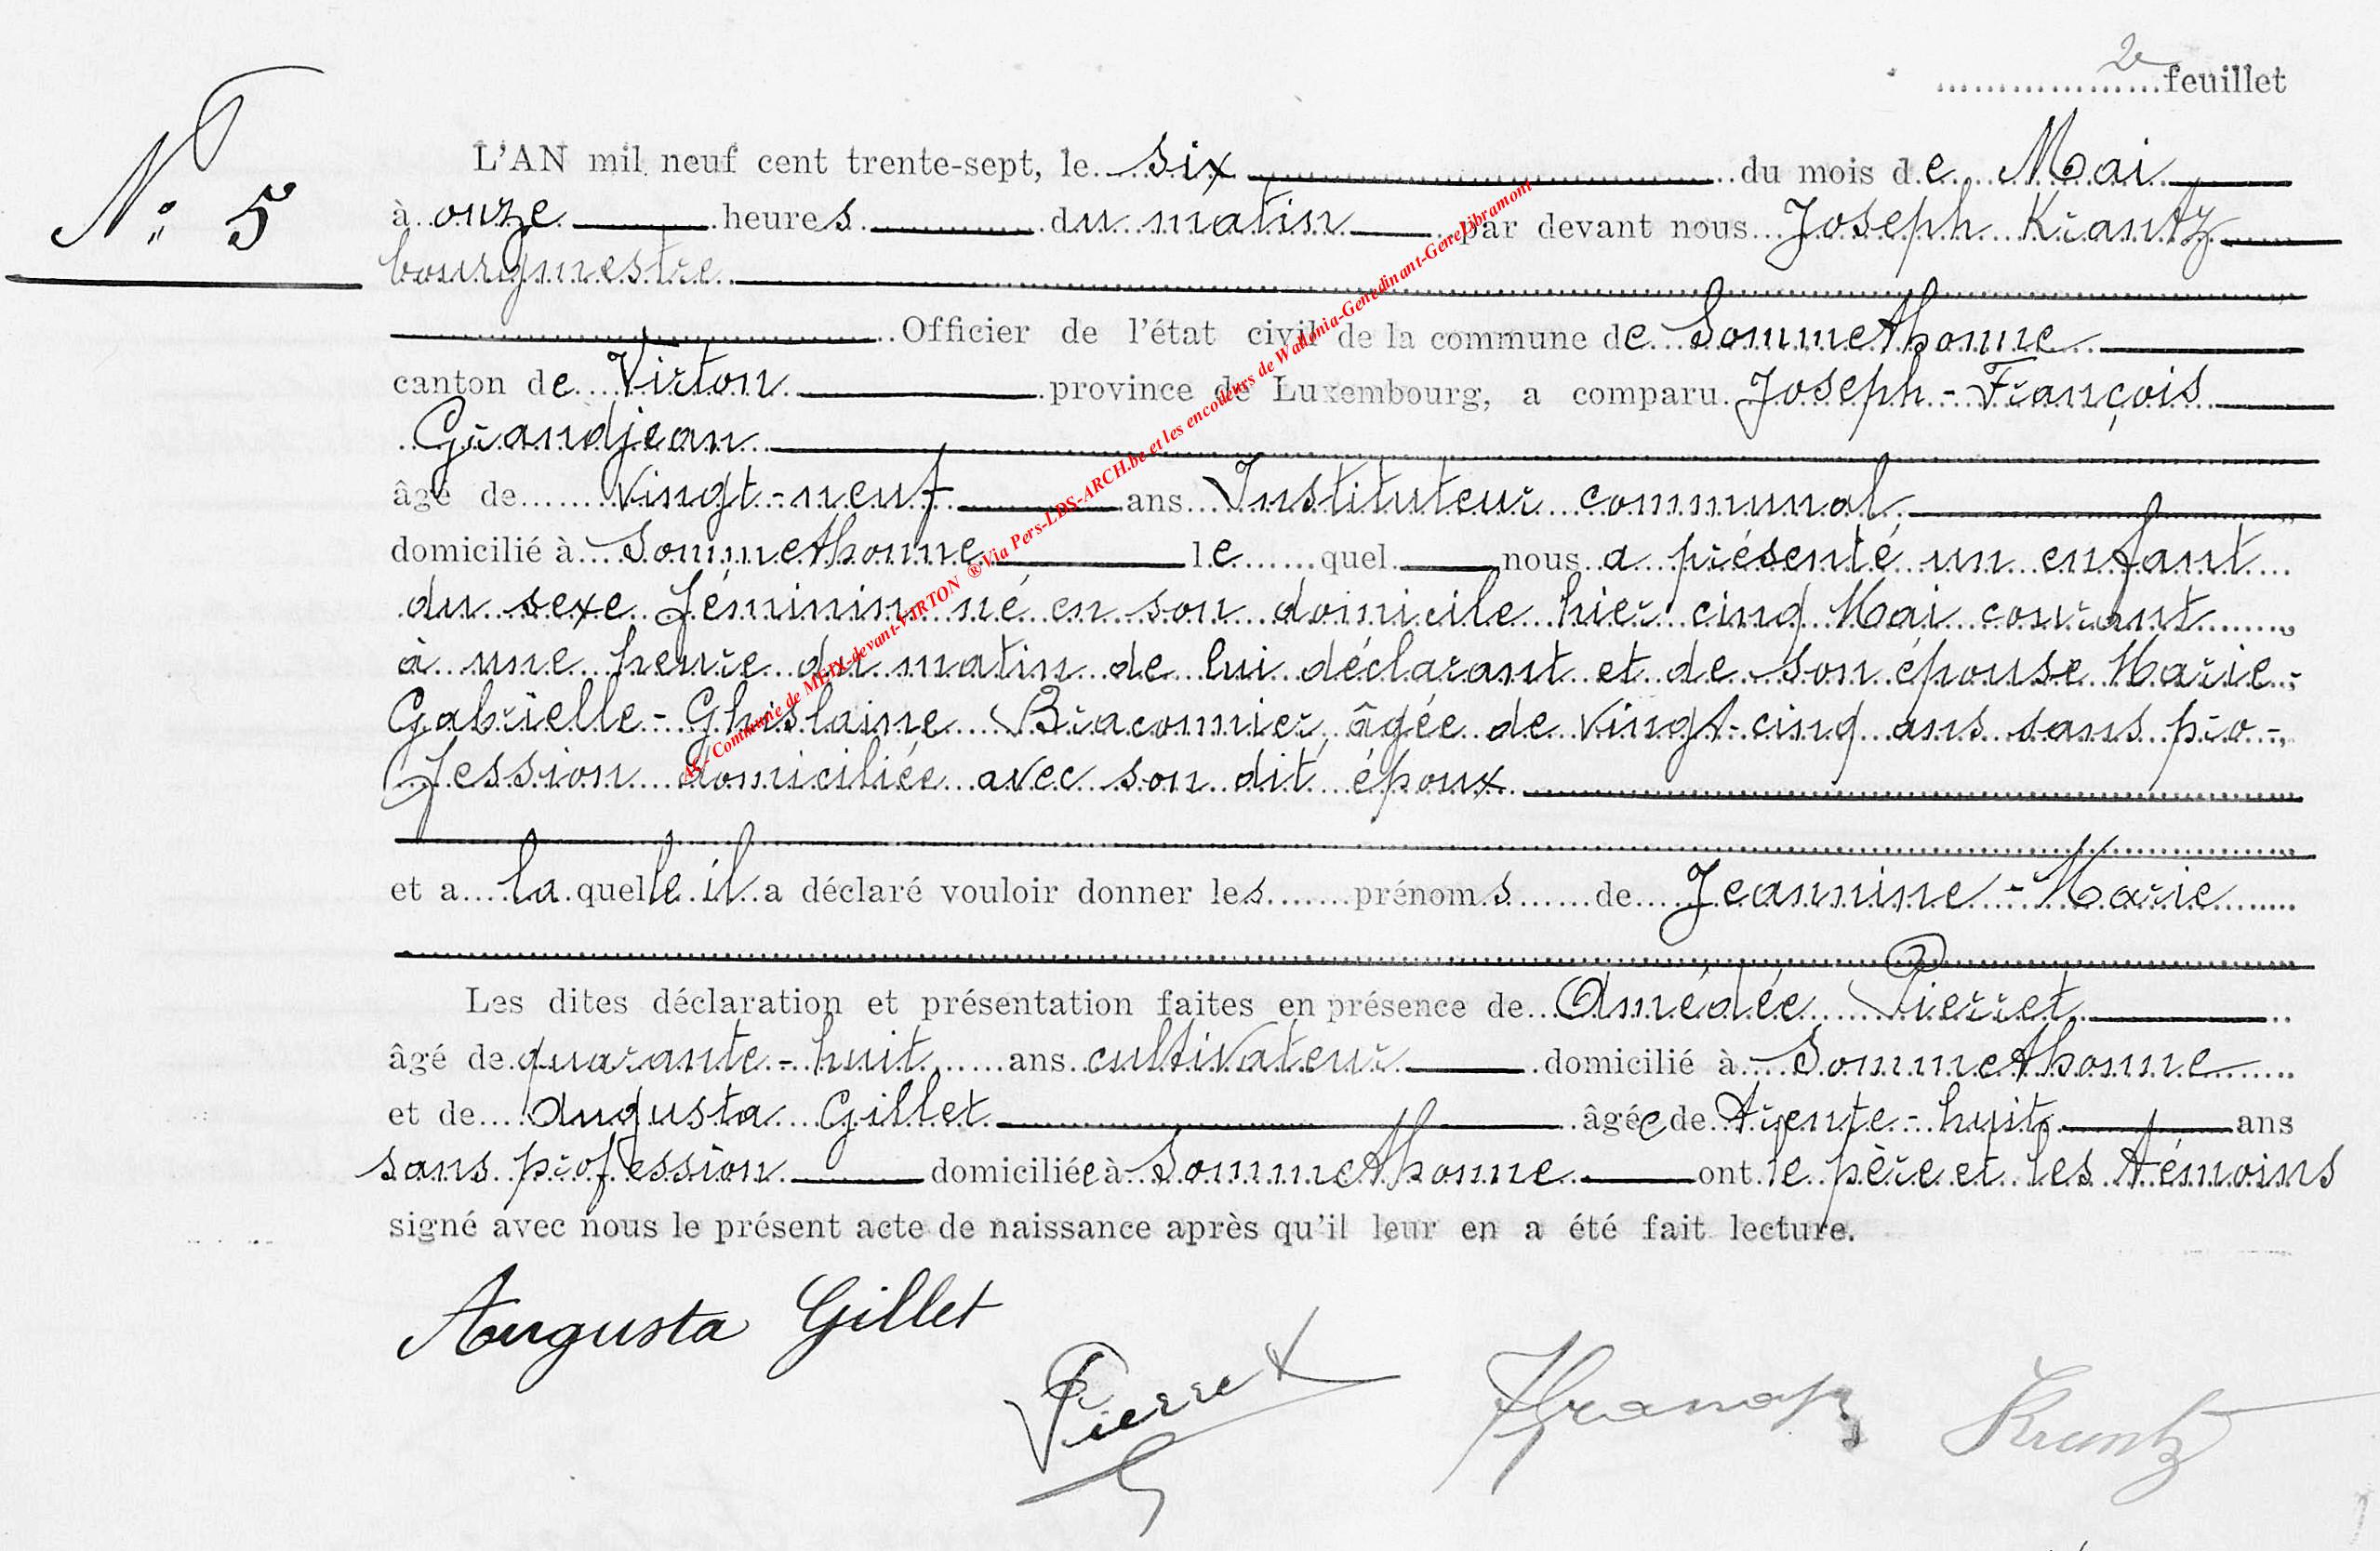 2e feuillet
N° 5
L'AN mil neuf cent trente-sept, le six du mois de Mai
à onze heures du matin par devant nous Joseph Krantz
bourgmestre
Officier de l'état civil de la commune de Sommethonne
canton de Virton province de Luxembourg, a comparu Joseph-François
Grandjean
âgé de vingt-neuf ans Instituteur communal
domicilié à Sommethonne lequel nous a présenté un enfant
du sexe féminin né en son domicile hier cinq Mai courant
à une heure du matin de lui déclarant et de son épouse Marie-
Gabrielle-Ghislaine Braconnier, âgée de vingt-cinq ans sans pro-
fession domiciliée avec son dit époux
et a laquelle il a déclaré vouloir donner les prénoms de Jeannine-Marie
Les dites déclaration et présentation faites en présence de Amédée Pierret
âgé de quarante-huit ans cultivateur domicilié à Sommethonne
et de Augusta Gillet âgée de trente-huit ans
sans profession domiciliée à Sommethonne ont le père et les témoins
signé avec nous le présent acte de naissance après qu'il leur en a été fait lecture.
Augusta Gillet
Pierret
Krantz
Commune de MEIX-devant-VIRTON ®Via Pers-LDS-ARCH.be et les encodeurs de Wallonia-Genedinant-GeneLibramont